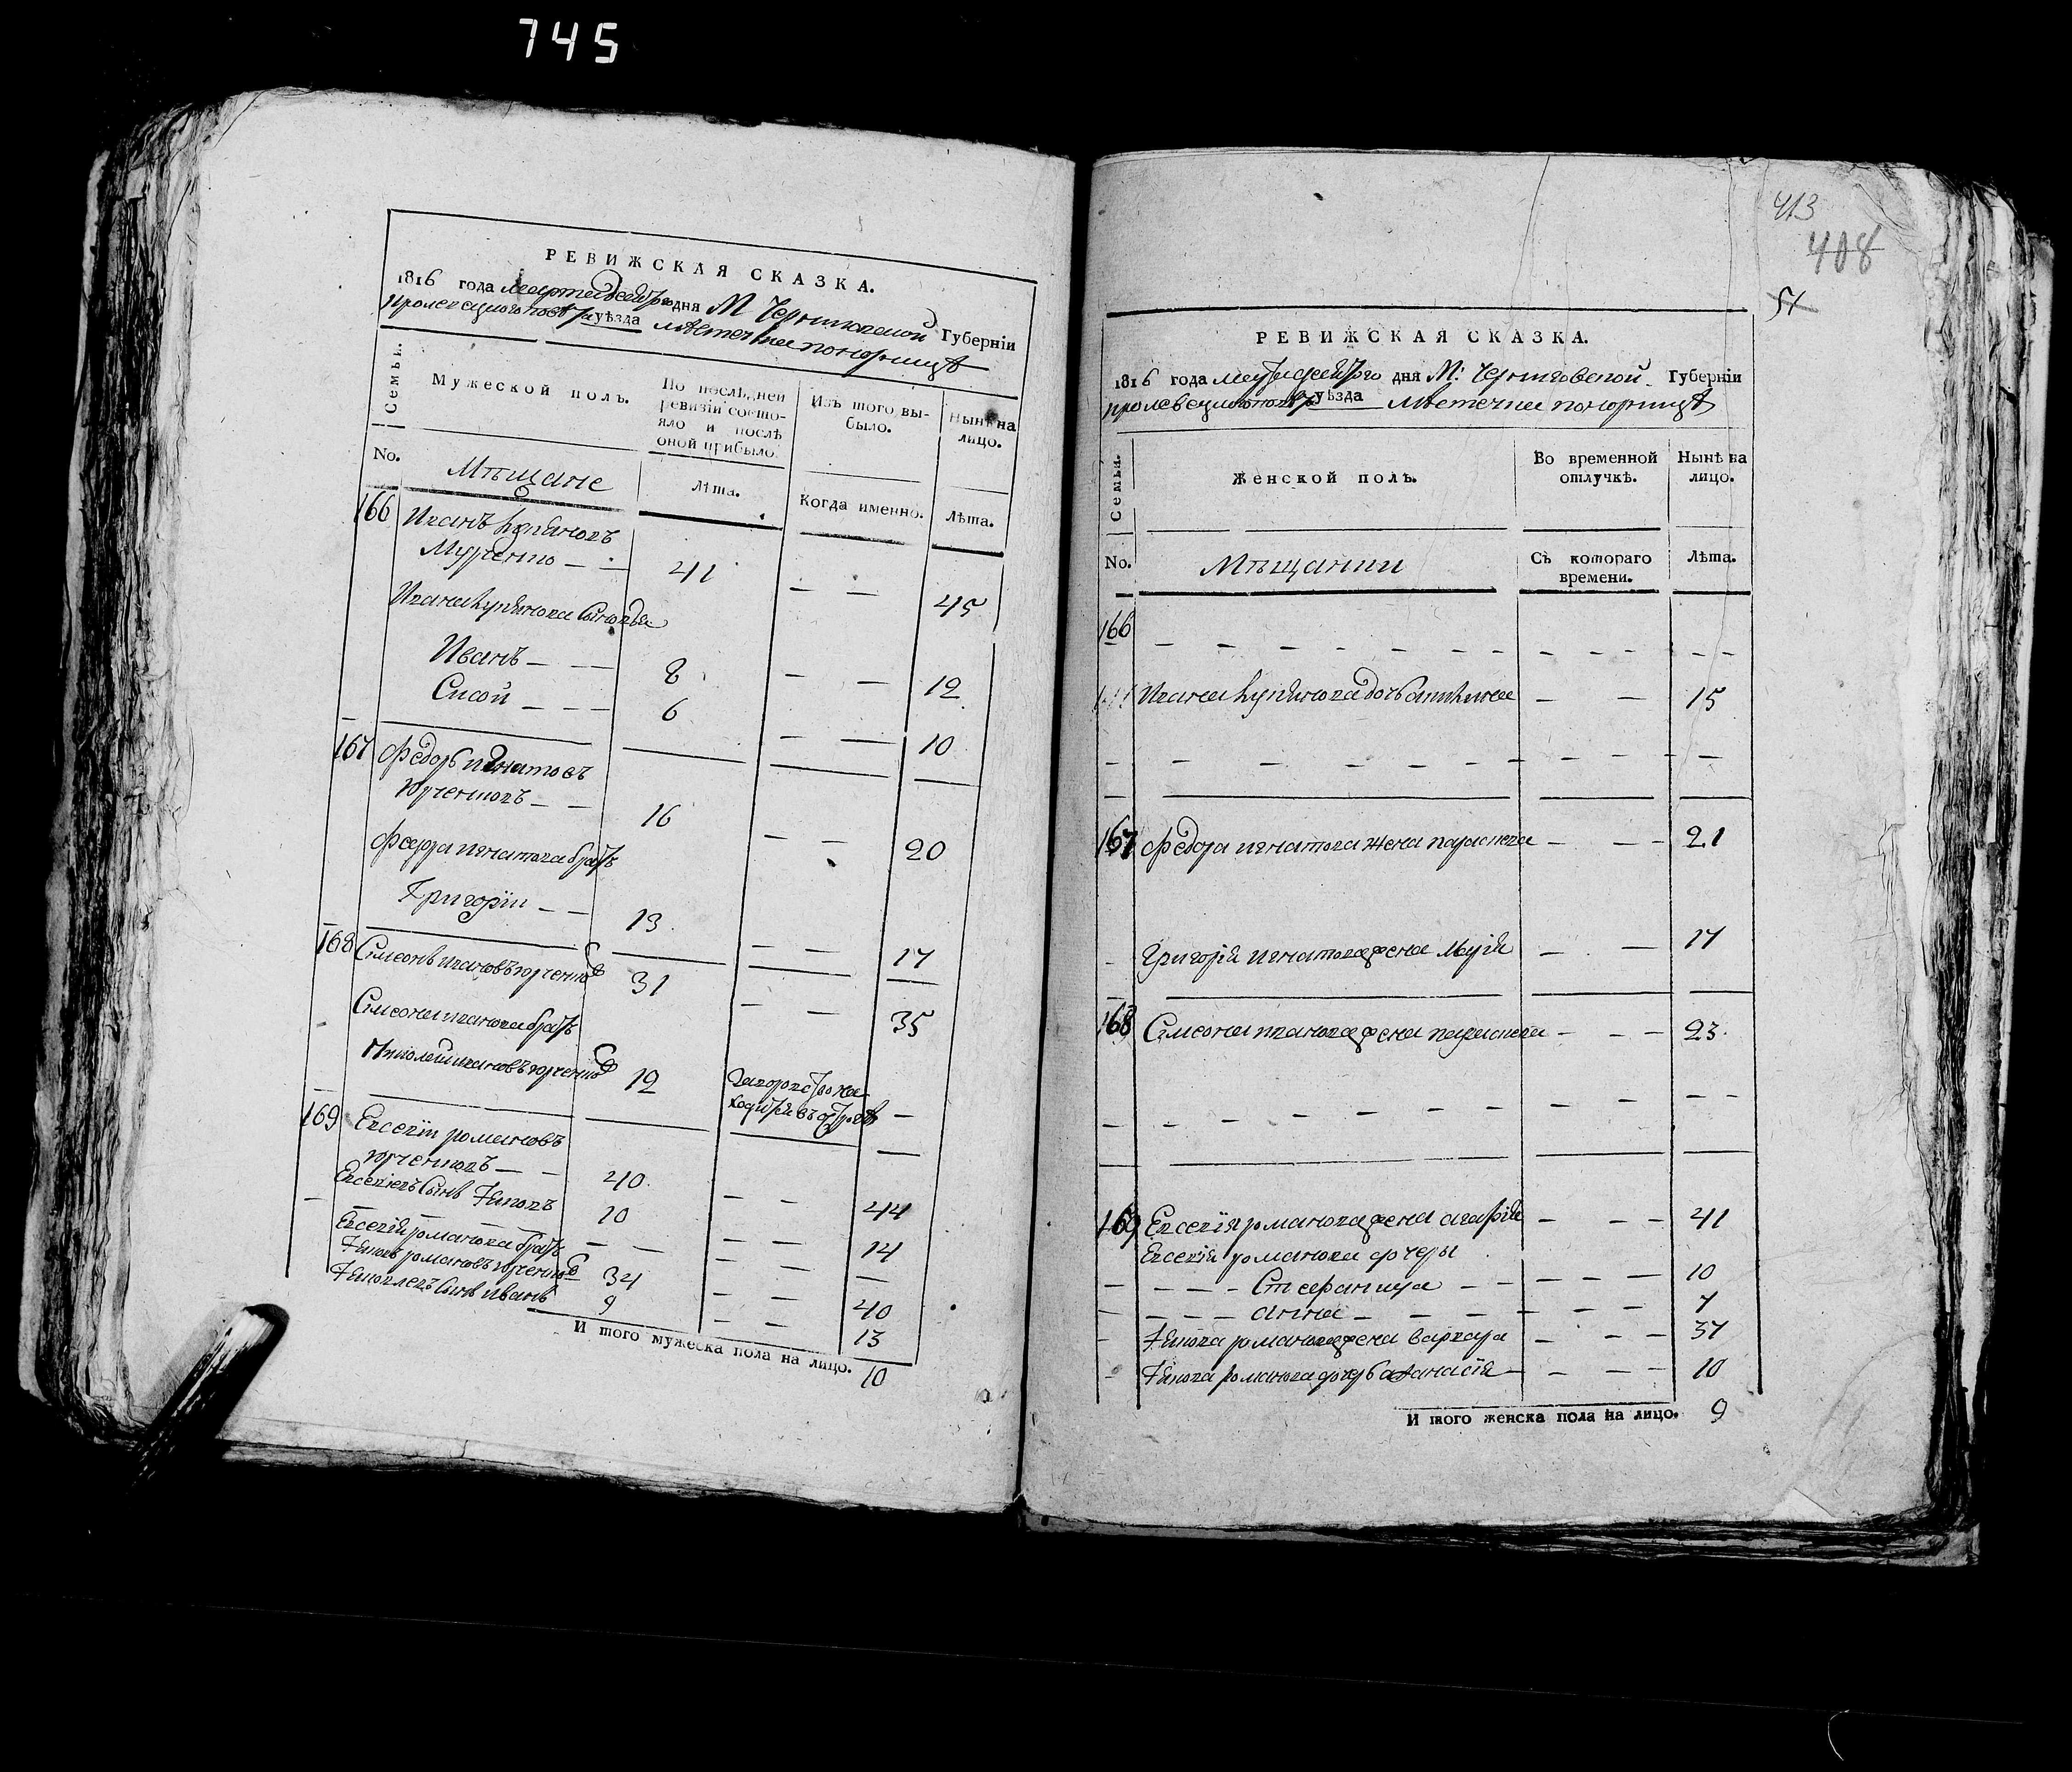 745
РЕВИЖСКАЯ СКАЗКА.
1816 года марта дня М Черниговской Губерніи
уѣзда местечка понорницѣ
Семьи.
Мужеской полъ.
По послѣдней ревизіи состояло и послѣ оной прибыло.
Изъ того выбыло.
Нынѣ на лицо.
No.
Мѣщане
Лѣта.
Когда именно.
Лѣта.
166 Иванъ
41 — — 45
Ивана сыновья
Иванъ — — 8 — — 12
Сисой — — — 6 — — 10
167 Федоръ Игнатовъ
Юрченковъ — — 16 — — 20
Федора игнатова братъ
Григоріи — — 13 — — 17
168 Симеонъ ивановъ юрченко 31 — — 35
Симеона иванова братъ
Николай ивановъ юрченко 12 —
169 Евсевіи романовъ
юрченковъ — — 40 — — 44
Евсевіевъ сынъ 10 — — 14
Евсевія романова братъ — —
романовъ юрченко 34 — — 40
сынъ иванъ 9 — — 13
И того мужеска пола на лицо. 10
413
408
51
РЕВИЖСКАЯ СКАЗКА.
1816 года марта дня М: Черниговской Губерніи
уѣзда местечка понорницѣ
Семьи.
Женской полъ.
Во временной отлучкѣ.
Нынѣ на лицо.
No.
Мѣщанки
Съ котораго времени.
Лѣта.
166
Ивана дочь — — 15
167 Федора игнатова жена параскева — — — 21
Григорія игнатова жена Марія — — 17
168 Симеона иванова жена параскева — — — 23
169 Евсевія романова жена агафія — — — 41
Евсевія романова дочери
10
анна — 7
романова жена варвара — — — 37
романова дочь афанасія — — — 10
И того женска пола на лицо. 9